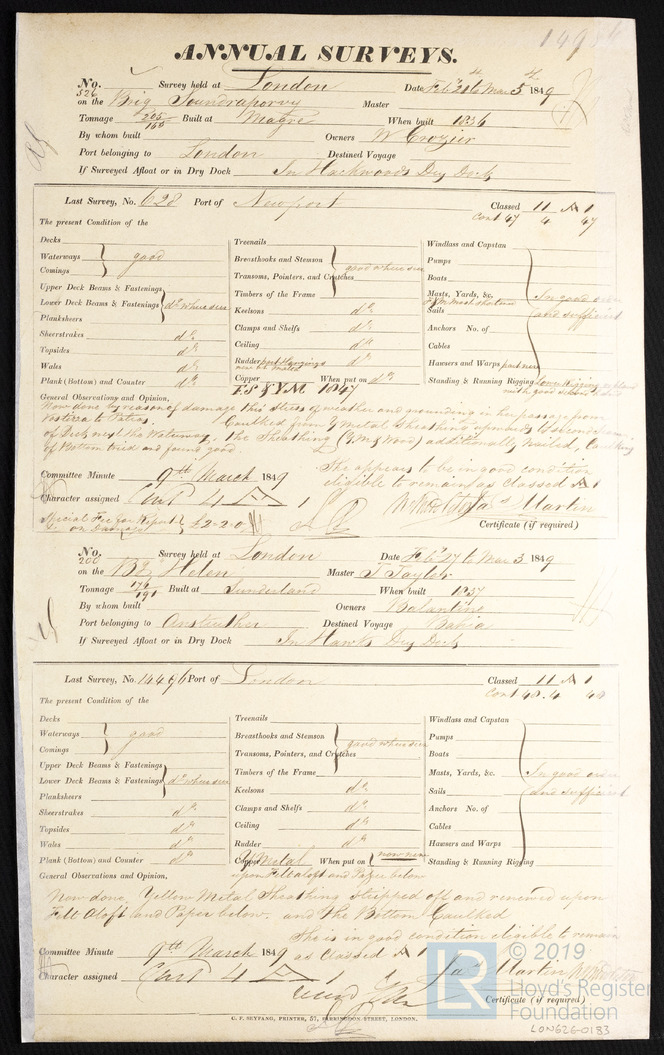 ANNUAL SURVEYS.
No. 526 Survey held at London Date Feby 21 to Mar 3 1849
on the Brig Soundraporvy Master
Tonnage 205/165 Built at Magre When built 1836
By whom built Owners W Crozier
Port belonging to London Destined Voyage
If Surveyed Afloat or in Dry Dock In Hackwoods Dry Dock
Last Survey, No. 628 Port of Newport Classed 11 A 1
Cont 47 4 47
The present Condition of the
Decks Treenails Windlass and Capstan
Waterways good Breasthooks and Stemson Pumps
Comings Transoms, Pointers, and Crutches good where seen Boats
Upper Deck Beams & Fastenings Timbers of the Frame Masts, Yards, &c. In good
Lower Deck Beams & Fastenings do where seen Keelsons do Sails and sufficient
Planksheers Clamps and Shelfs do Anchors No. of
Sheerstrakes do Ceiling do Cables
Topsides do Rudder do Hawsers and Warps part new
Wales do
Plank (Bottom) and Counter do Copper FS & YM 1847 When put on do Standing & Running Rigging
General Observations and Opinion,
Now done by reason of damage this stress of weather and grounding in her passage from
to Caulked from Metal Sheathing upwards to seconds
of Deck next the Waterway, the Sheathing (Y M & Wood) additionally Nailed, Caulking
of Bottom tried and found good.
She appears to be in good condition
Committee Minute 9th March 1849 eligible to remain as Classed A 1
Character assigned Cont 4 A 1 Jas Martin
Special Fee for Report on Damage £2=2=0 Certificate (if required)
No. 200 Survey held at London Date Feby 27 to Mar 3 1849
on the Bg Helen Master J Taylor
Tonnage 176/191 Built at Sunderland When built 1837
By whom built Owners Balantine
Port belonging to Anstruther Destined Voyage Bahia
If Surveyed Afloat or in Dry Dock In Hawks Dry Dock
Last Survey, No. 14496 Port of London Classed 11 A 1
Cont 48.4 48
The present Condition of the
Decks Treenails Windlass and Capstan
Waterways good Breasthooks and Stemson Pumps
Comings Transoms, Pointers, and Crutches good where seen Boats
Upper Deck Beams & Fastenings Timbers of the Frame Masts, Yards, &c. In good
Lower Deck Beams & Fastenings do where seen Keelsons do Sails and sufficient
Planksheers Clamps and Shelfs do Anchors No. of
Sheerstrakes do Ceiling do Cables
Topsides do Rudder do Hawsers and Warps
Wales do
Plank (Bottom) and Counter do Copper Y Metal When put on now new Standing & Running Rigging
General Observations and Opinion, upon Felt aloft and Paper below
Now done, Yellow Metal Sheathing stripped off and renewed upon
Felt aloft and Paper below. and the Bottom Caulked
She is in good condition eligible to remain
Committee Minute 9th March 1849 as Classed A 1
Character assigned Cont 4 A 1 Jas Martin
Certificate (if required)
C. F. SEYFANG, PRINTER, 57, FARRINGDON-STREET, LONDON.
LR © 2019
Lloyd's Register
Foundation
LON626-0183